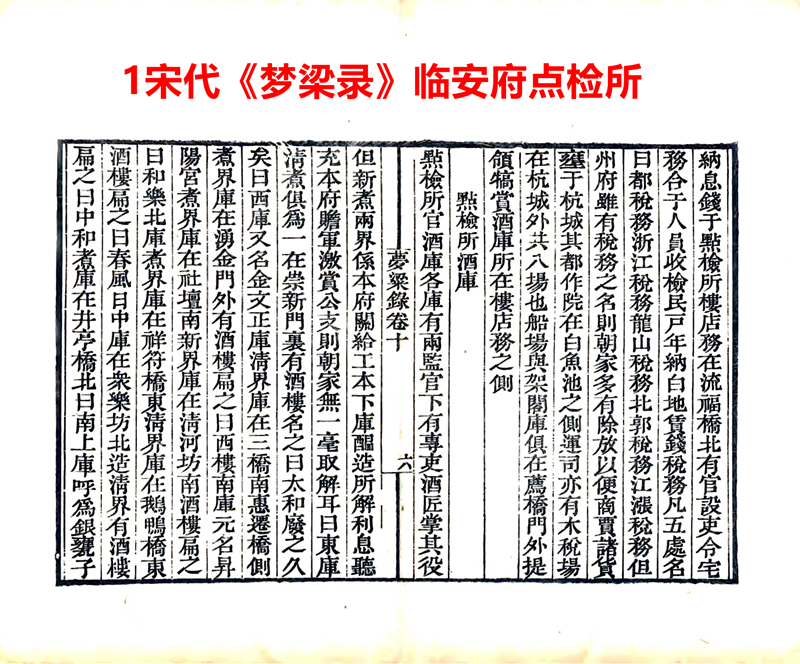 1宋代《梦梁录》临安府点检所
納息錢于點檢所樓店務在流福橋北有官設吏令宅
務合于人員收檢民戸年納白地賃錢稅務凡五處名
曰都稅務浙江稅務龍山稅務北郭稅務江漲稅務但
州府雖有稅務之名則朝家多有除放以便商賈諸貨
壅于杭城其都作院在白魚池之側運司亦有木稅場
在杭城外共八場也船場與架閣庫俱在薦橋門外提
領犒賞酒庫所在樓店務之側
點檢所酒庫
點檢所官酒庫各庫有兩監官下有專吏酒匠掌其役
夢粱錄卷十
六
但新煮兩界係本府關給工本下庫醞造所解利息聽
充本府贍軍激賞公支則朝家無一毫取解耳曰東庫
清煮俱爲一在崇新門裏有酒樓名之曰太和廢之久
矣曰西庫又名金文正庫清界庫在三橋南惠遷橋側
煮界庫在湧金門外有酒樓扁之曰西樓南庫元名昇
陽宮煮界庫在社壇南新界庫在清河坊南酒樓扁之
曰和樂北庫煮界庫在祥符橋東清界庫在鵝鴨橋東
酒樓扁之曰春風曰中庫在衆樂坊北造清界有酒樓
扁之曰中和煮庫在井亭橋北曰南上庫呼爲銀甕子